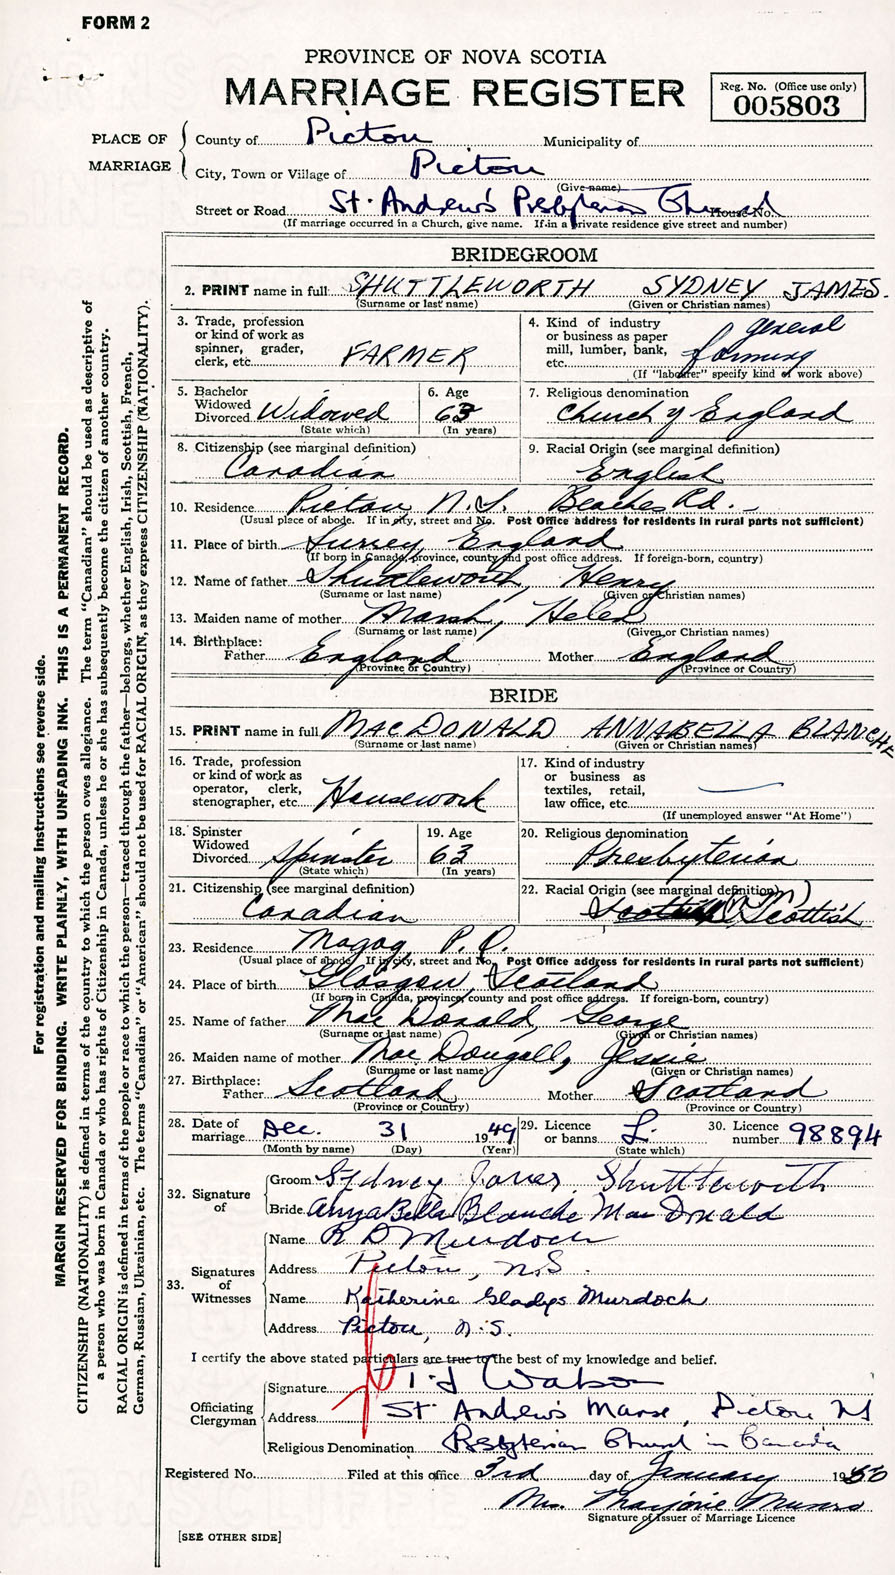 FORM 2
PROVINCE OF NOVA SCOTIA
MARRIAGE REGISTER
Reg. No. (Office use only)
005803
PLACE OF MARRIAGE
County of Pictou Municipality of
City, Town or Village of Pictou
(Give name)
Street or Road St. Andrew's Presbyterian Church House No.
(If marriage occurred in a Church, give name. If in a private residence give street and number)
BRIDEGROOM
2. PRINT name in full SHUTTLEWORTH SYDNEY JAMES.
(Surname or last name) (Given or Christian names)
3. Trade, profession or kind of work as spinner, grader, clerk, etc. FARMER
4. Kind of industry or business as paper mill, lumber, bank, etc. general farming
(If "labourer" specify kind of work above)
5. Bachelor Widowed Divorced Widowed
(State which)
6. Age 63
(In years)
7. Religious denomination
Church of England
8. Citizenship (see marginal definition)
Canadian
9. Racial Origin (see marginal definition)
English
10. Residence Pictou N.S. Beaches Rd.
(Usual place of abode. If in city, street and No. Post Office address for residents in rural parts not sufficient)
11. Place of birth Surrey England
(If born in Canada, province, county and post office address. If foreign-born, country)
12. Name of father Shuttleworth, Henry
(Surname or last name) (Given or Christian names)
13. Maiden name of mother Marsh, Helen
(Surname or last name) (Given or Christian names)
14. Birthplace:
Father England Mother England
(Province or Country) (Province or Country)
BRIDE
15. PRINT name in full MACDONALD ANNABELLA BLANCHE
(Surname or last name) (Given or Christian names)
16. Trade, profession or kind of work as operator, clerk, stenographer, etc. Housework
17. Kind of industry or business as textiles, retail, law office, etc.
(If unemployed answer "At Home")
18. Spinster Widowed Divorced Spinster
(State which)
19. Age 63
(In years)
20. Religious denomination
Presbyterian
21. Citizenship (see marginal definition)
Canadian
22. Racial Origin (see marginal definition)
Scottish
23. Residence Magog, P.Q.
(Usual place of abode. If in city, street and No. Post Office address for residents in rural parts not sufficient)
24. Place of birth Glasgow, Scotland
(If born in Canada, province, county and post office address. If foreign-born, country)
25. Name of father MacDonald, George
(Surname or last name) (Given or Christian names)
26. Maiden name of mother MacDougall, Jessie
(Surname or last name) (Given or Christian names)
27. Birthplace:
Father Scotland Mother Scotland
(Province or Country) (Province or Country)
28. Date of marriage Dec. 31 1949
(Month by name) (Day) (Year)
29. Licence or banns L.
(State which)
30. Licence number 98894
32. Signature of
Groom Sydney James Shuttleworth
Bride AnnaBella Blanche MacDonald
33. Signatures of Witnesses
Name R D Murdoch
Address Pictou, N.S.
Name Katherine Gladys Murdoch
Address Pictou, N.S.
I certify the above stated particulars are true to the best of my knowledge and belief.
Officiating Clergyman
Signature Watson
Address St Andrew's Manse, Pictou NS
Religious Denomination Presbyterian Church in Canada
Registered No. Filed at this office 3rd day of January 1950
Mrs. Marjorie Munro
Signature of Issuer of Marriage Licence
[SEE OTHER SIDE]
For registration and mailing instructions see reverse side.
MARGIN RESERVED FOR BINDING. WRITE PLAINLY, WITH UNFADING INK. THIS IS A PERMANENT RECORD.
CITIZENSHIP (NATIONALITY) is defined in terms of the country to which the person owes allegiance. The term "Canadian" should be used as descriptive of
a person who was born in Canada or who has rights of Citizenship in Canada, unless he or she has subsequently become the citizen of another country.
RACIAL ORIGIN is defined in terms of the people or race to which the person—traced through the father—belongs, whether English, Irish, Scottish, French,
German, Russian, Ukrainian, etc. The terms "Canadian" or "American" should not be used for RACIAL ORIGIN, as they express CITIZENSHIP (NATIONALITY).